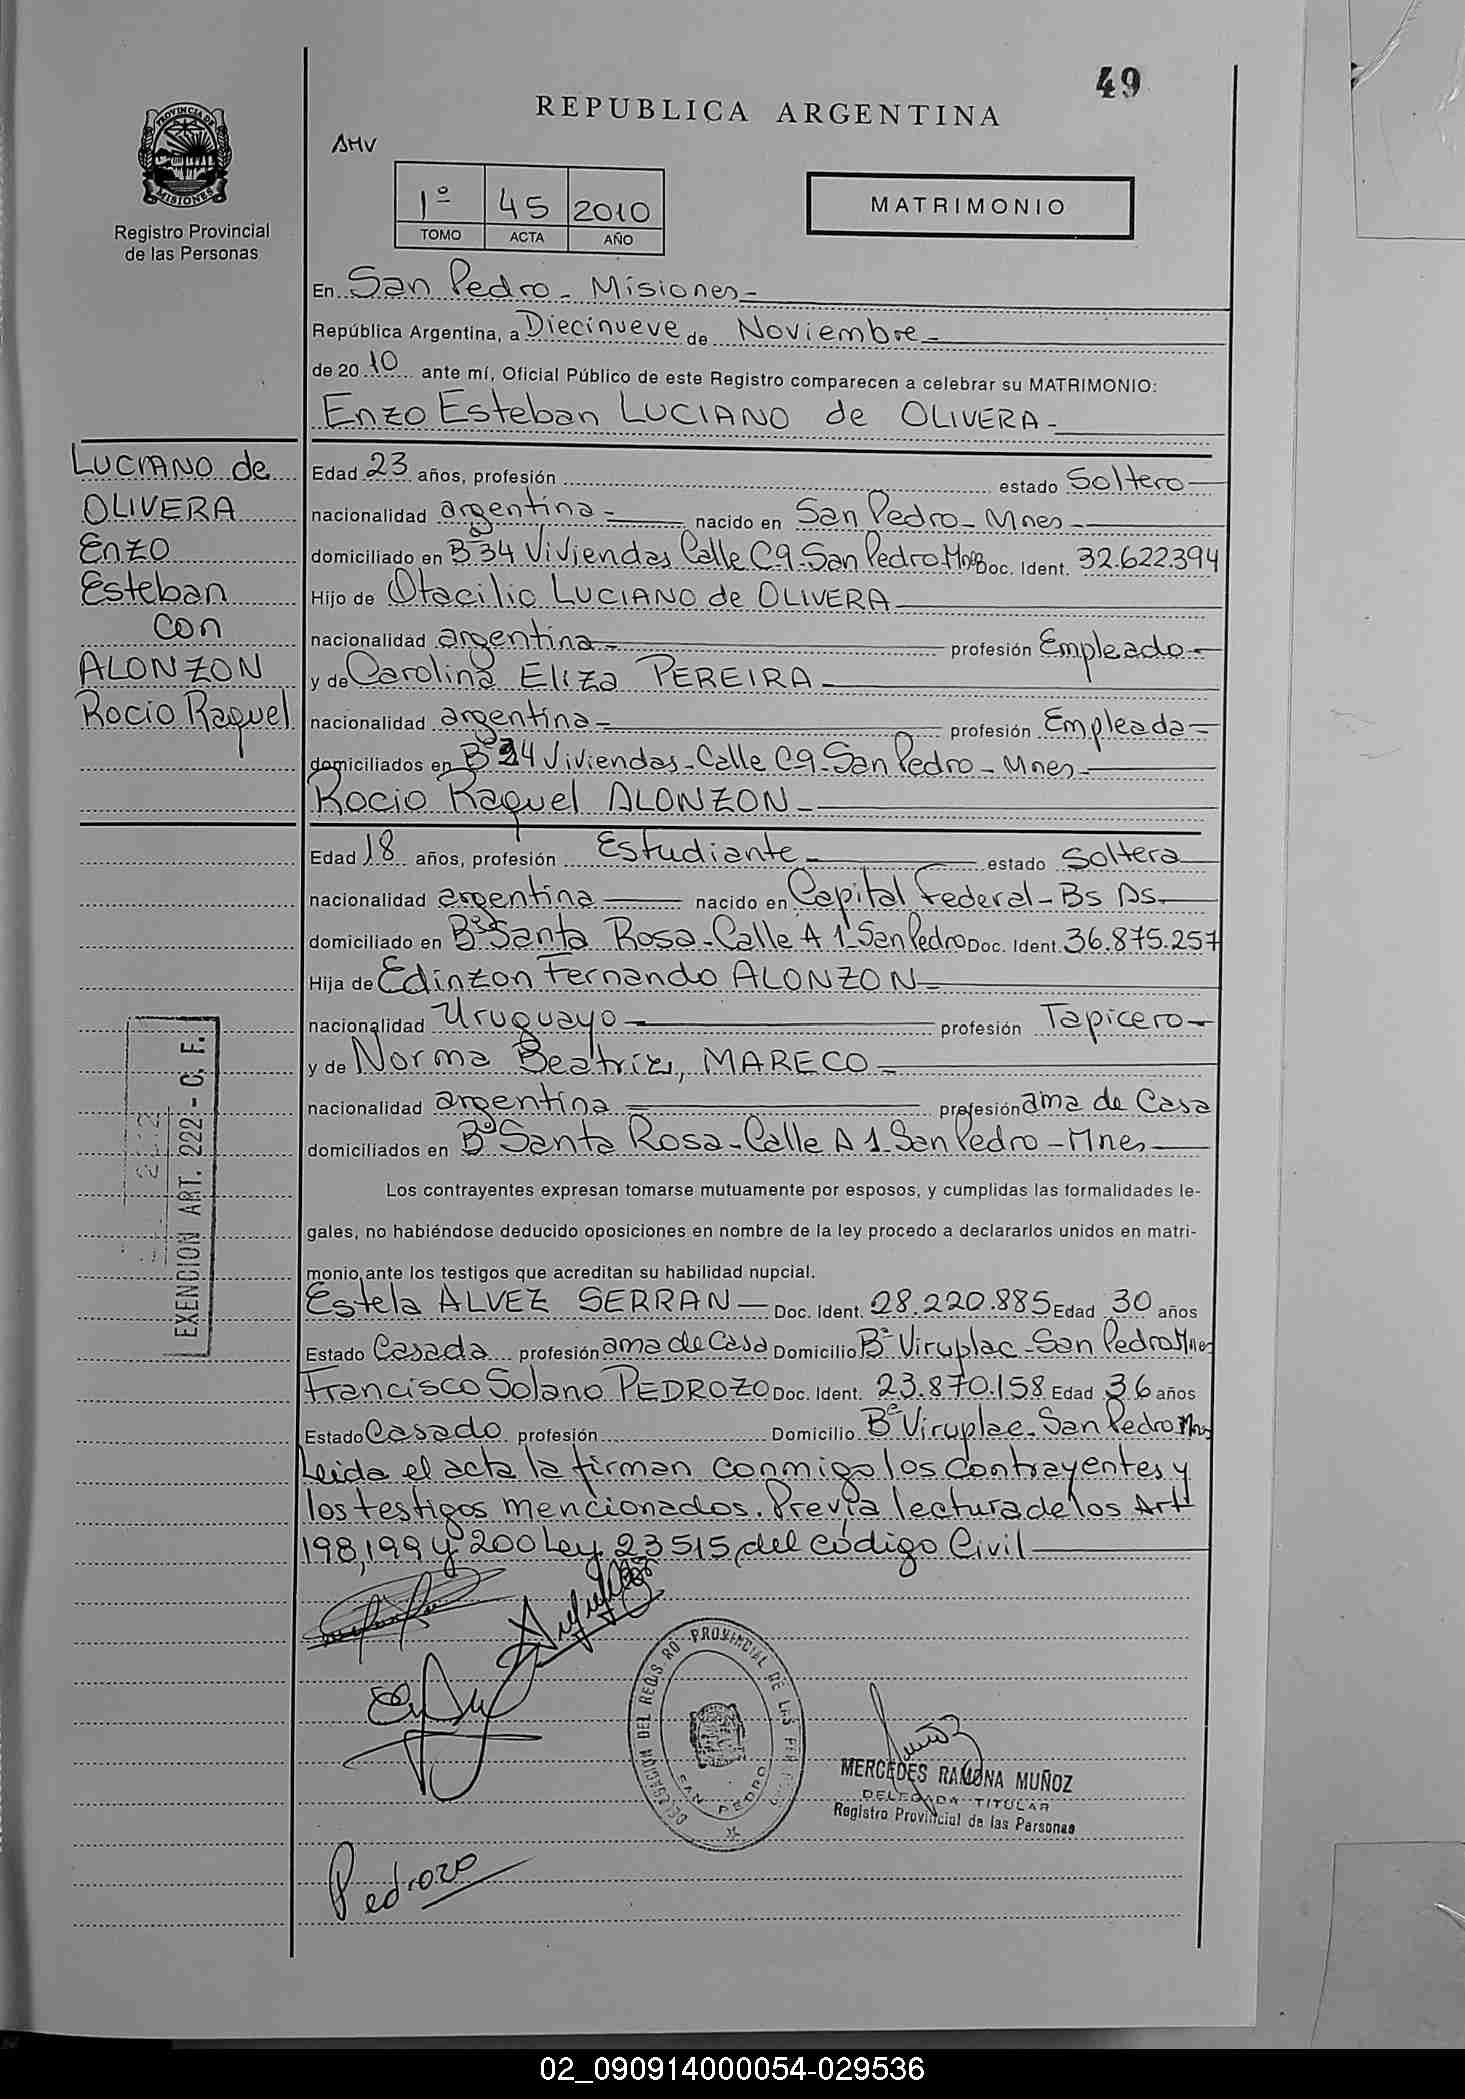 49
REPUBLICA ARGENTINA
PROVINCIA DE
MISIONES
Registro Provincial
de las Personas
AHV
1º 45 2010
TOMO ACTA AÑO
MATRIMONIO
En San Pedro - Misiones -
República Argentina, a Diecinueve de Noviembre -
de 2010 ante mí, Oficial Público de este Registro comparecen a celebrar su MATRIMONIO:
Enzo Esteban LUCIANO de OLIVERA -
LUCIANO de
OLIVERA
Enzo
Esteban
con
ALONZON
Rocio Raquel
Edad 23 años, profesión estado Soltero
nacionalidad argentina - nacido en San Pedro - Mnes -
domiciliado en Bº 34 Viviendas Calle C9 - San Pedro - Mnes Doc. Ident. 32.622.394
Hijo de Otacilio LUCIANO de OLIVERA
nacionalidad argentina - profesión Empleado -
y de Carolina Eliza PEREIRA -
nacionalidad argentina - profesión Empleada -
domiciliados en Bº 34 Viviendas - Calle C9 - San Pedro - Mnes -
Rocio Raquel ALONZON -
Edad 18 años, profesión Estudiante - estado Soltera
nacionalidad argentina nacido en Capital Federal - Bs As -
domiciliado en Bº Santa Rosa - Calle A 1 - San Pedro Doc. Ident. 36.875.257
Hija de Edinzon Fernando ALONZON -
nacionalidad Uruguayo profesión Tapicero -
y de Norma Beatriz, MARECO -
nacionalidad argentina profesión ama de Casa
domiciliados en Bº Santa Rosa - Calle A 1 - San Pedro - Mnes
Los contrayentes expresan tomarse mutuamente por esposos, y cumplidas las formalidades le-
gales, no habiéndose deducido oposiciones en nombre de la ley procedo a declararlos unidos en matri-
monio ante los testigos que acreditan su habilidad nupcial.
Estela ALVEZ SERRAN - Doc. Ident. 28.220.885 Edad 30 años
Estado Casada profesión ama de Casa Domicilio Bº Viruplac - San Pedro Mnes
Francisco Solano PEDROZO Doc. Ident. 23.870.158 Edad 36 años
Estado Casado profesión Domicilio Bº Viruplac - San Pedro Mnes
Leida el acta la firman conmigo los Contrayentes y
los testigos mencionados. Previa lectura de los Art
198, 199 y 200 Ley 23515 del código Civil
EXENCION ART. 222 - C. F.
DELEGACION DEL REGISTRO PROVINCIAL DE LAS PERSONAS
SAN PEDRO
Muñoz
MERCEDES RAMONA MUÑOZ
DELEGADA TITULAR
Registro Provincial de las Personas
Pedrozo
02_090914000054-029536